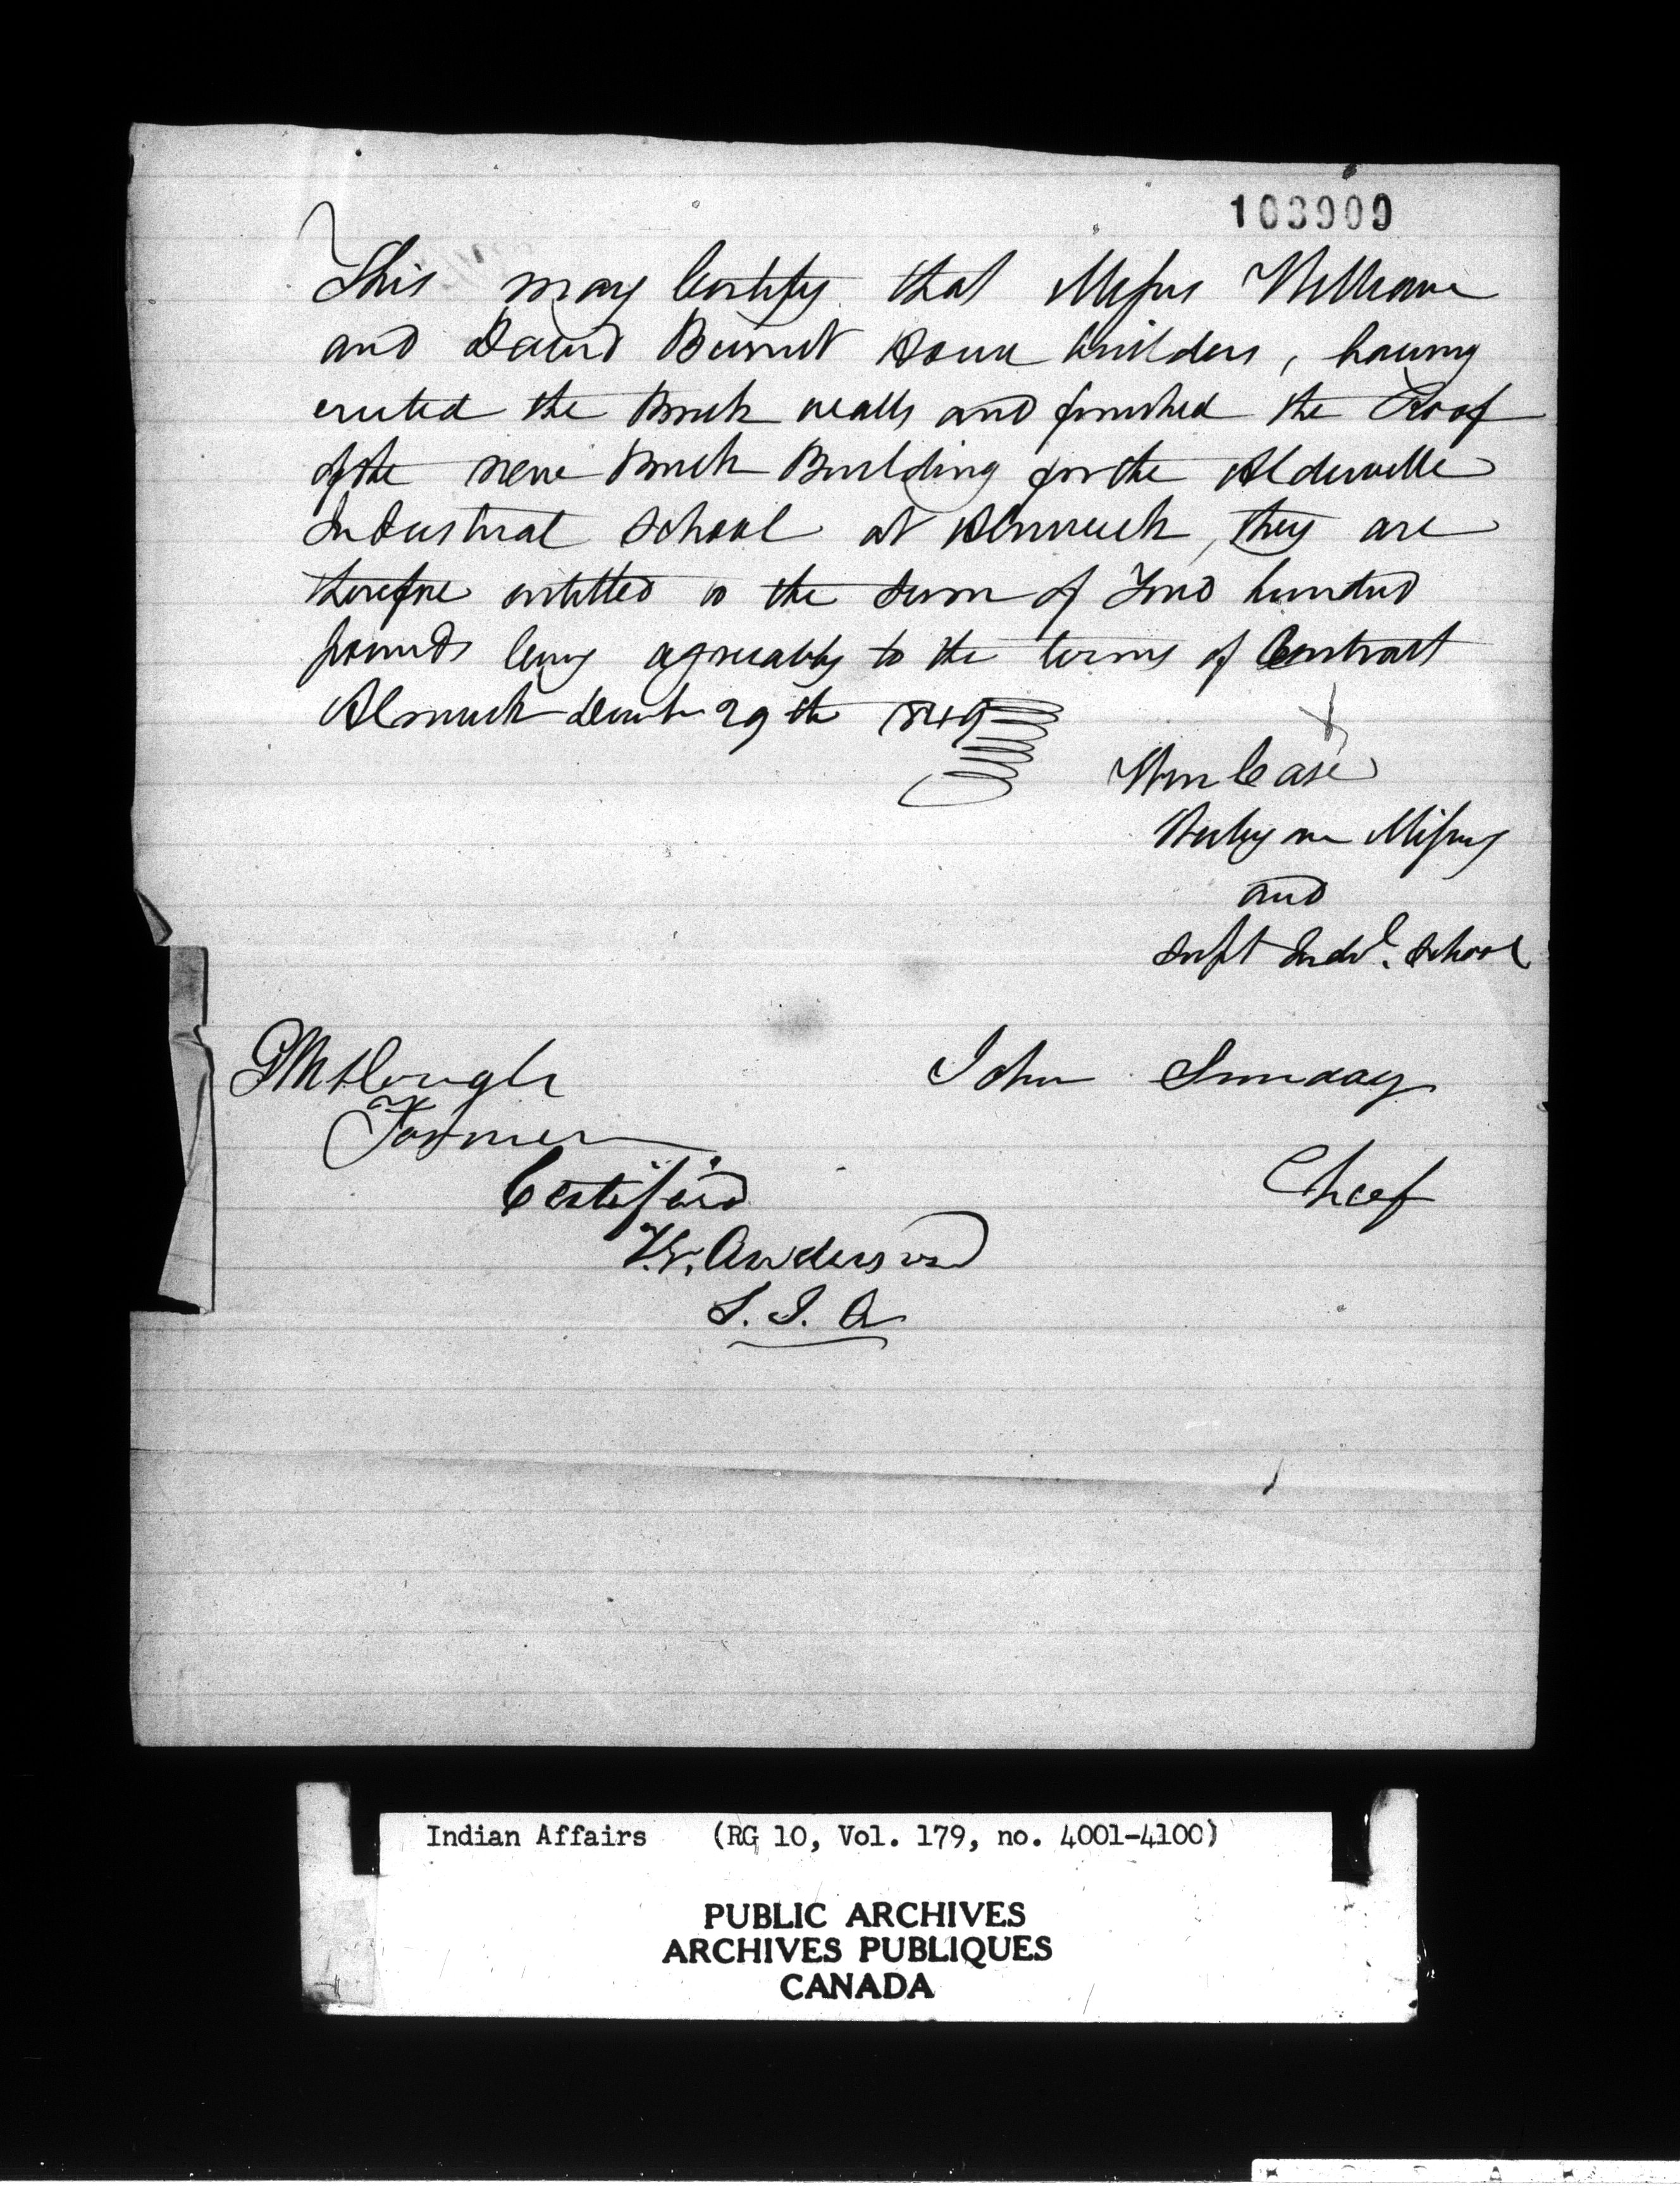 103909
This may Certify that Messrs William
and David Burnet House builders, having
erected the Brick walls and finished the Roof
of the new Brick Building for the Alderville
Industrial School at Alnwick, they are
therefore entitled to the Sum of Two hundred
pounds being agreeably to the terms of Contract
Alnwick Decembr 29th 1849
Wm Case
Wesleyan Missy
and
Supt Indl. School
John Sunday
Chief
Certified
T.G. Anderson
S. I. A
Indian Affairs (RG 10, Vol. 179, no. 4001-4100)
PUBLIC ARCHIVES
ARCHIVES PUBLIQUES
CANADA